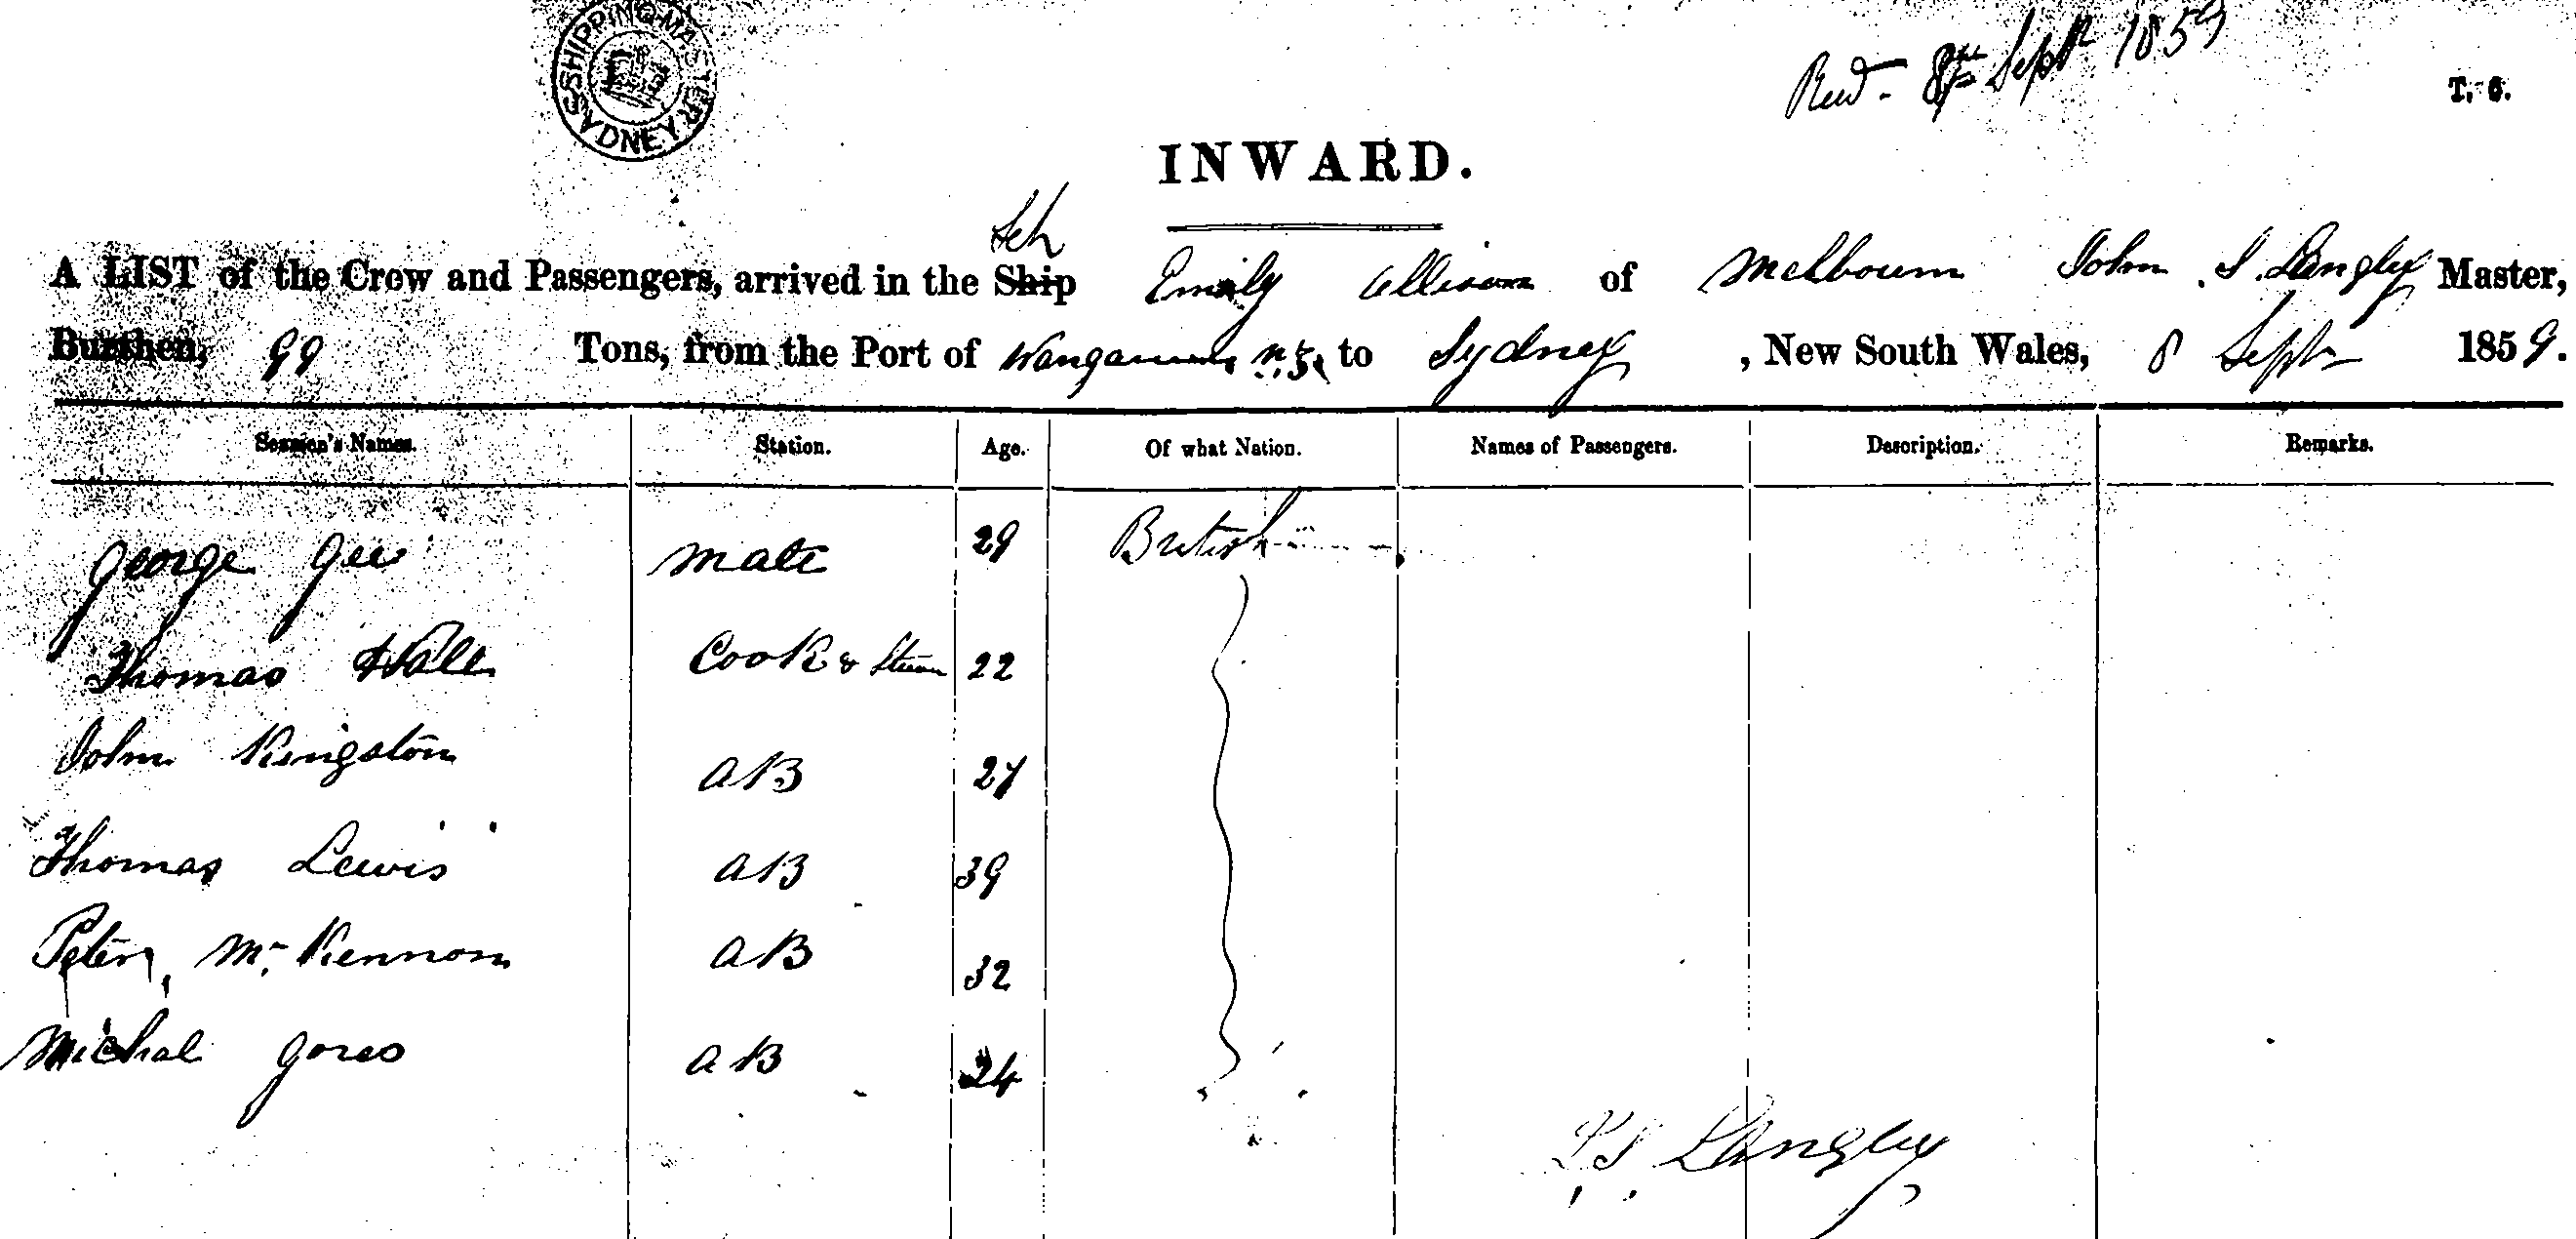 SHIPPING MASTER SYDNEY
Recd. 8th Sept 1859
T. 6.
INWARD.
Sch
A LIST of the Crew and Passengers, arrived in the Ship Emily Allison of Melbourn John S. Langley Master,
Burthen, 99 Tons, from the Port of N.Z. to Sydney, New South Wales, 8 Sept 1859.
Seamen's Names. Station. Age. Of what Nation. Names of Passengers. Description. Remarks.
George Gee Mate 29 British
Thomas Hall Cook & 22
John Kingston AB 27
Thomas Lewis AB 39
Peter McKennon AB 32
Michal Gores AB 24
Langley